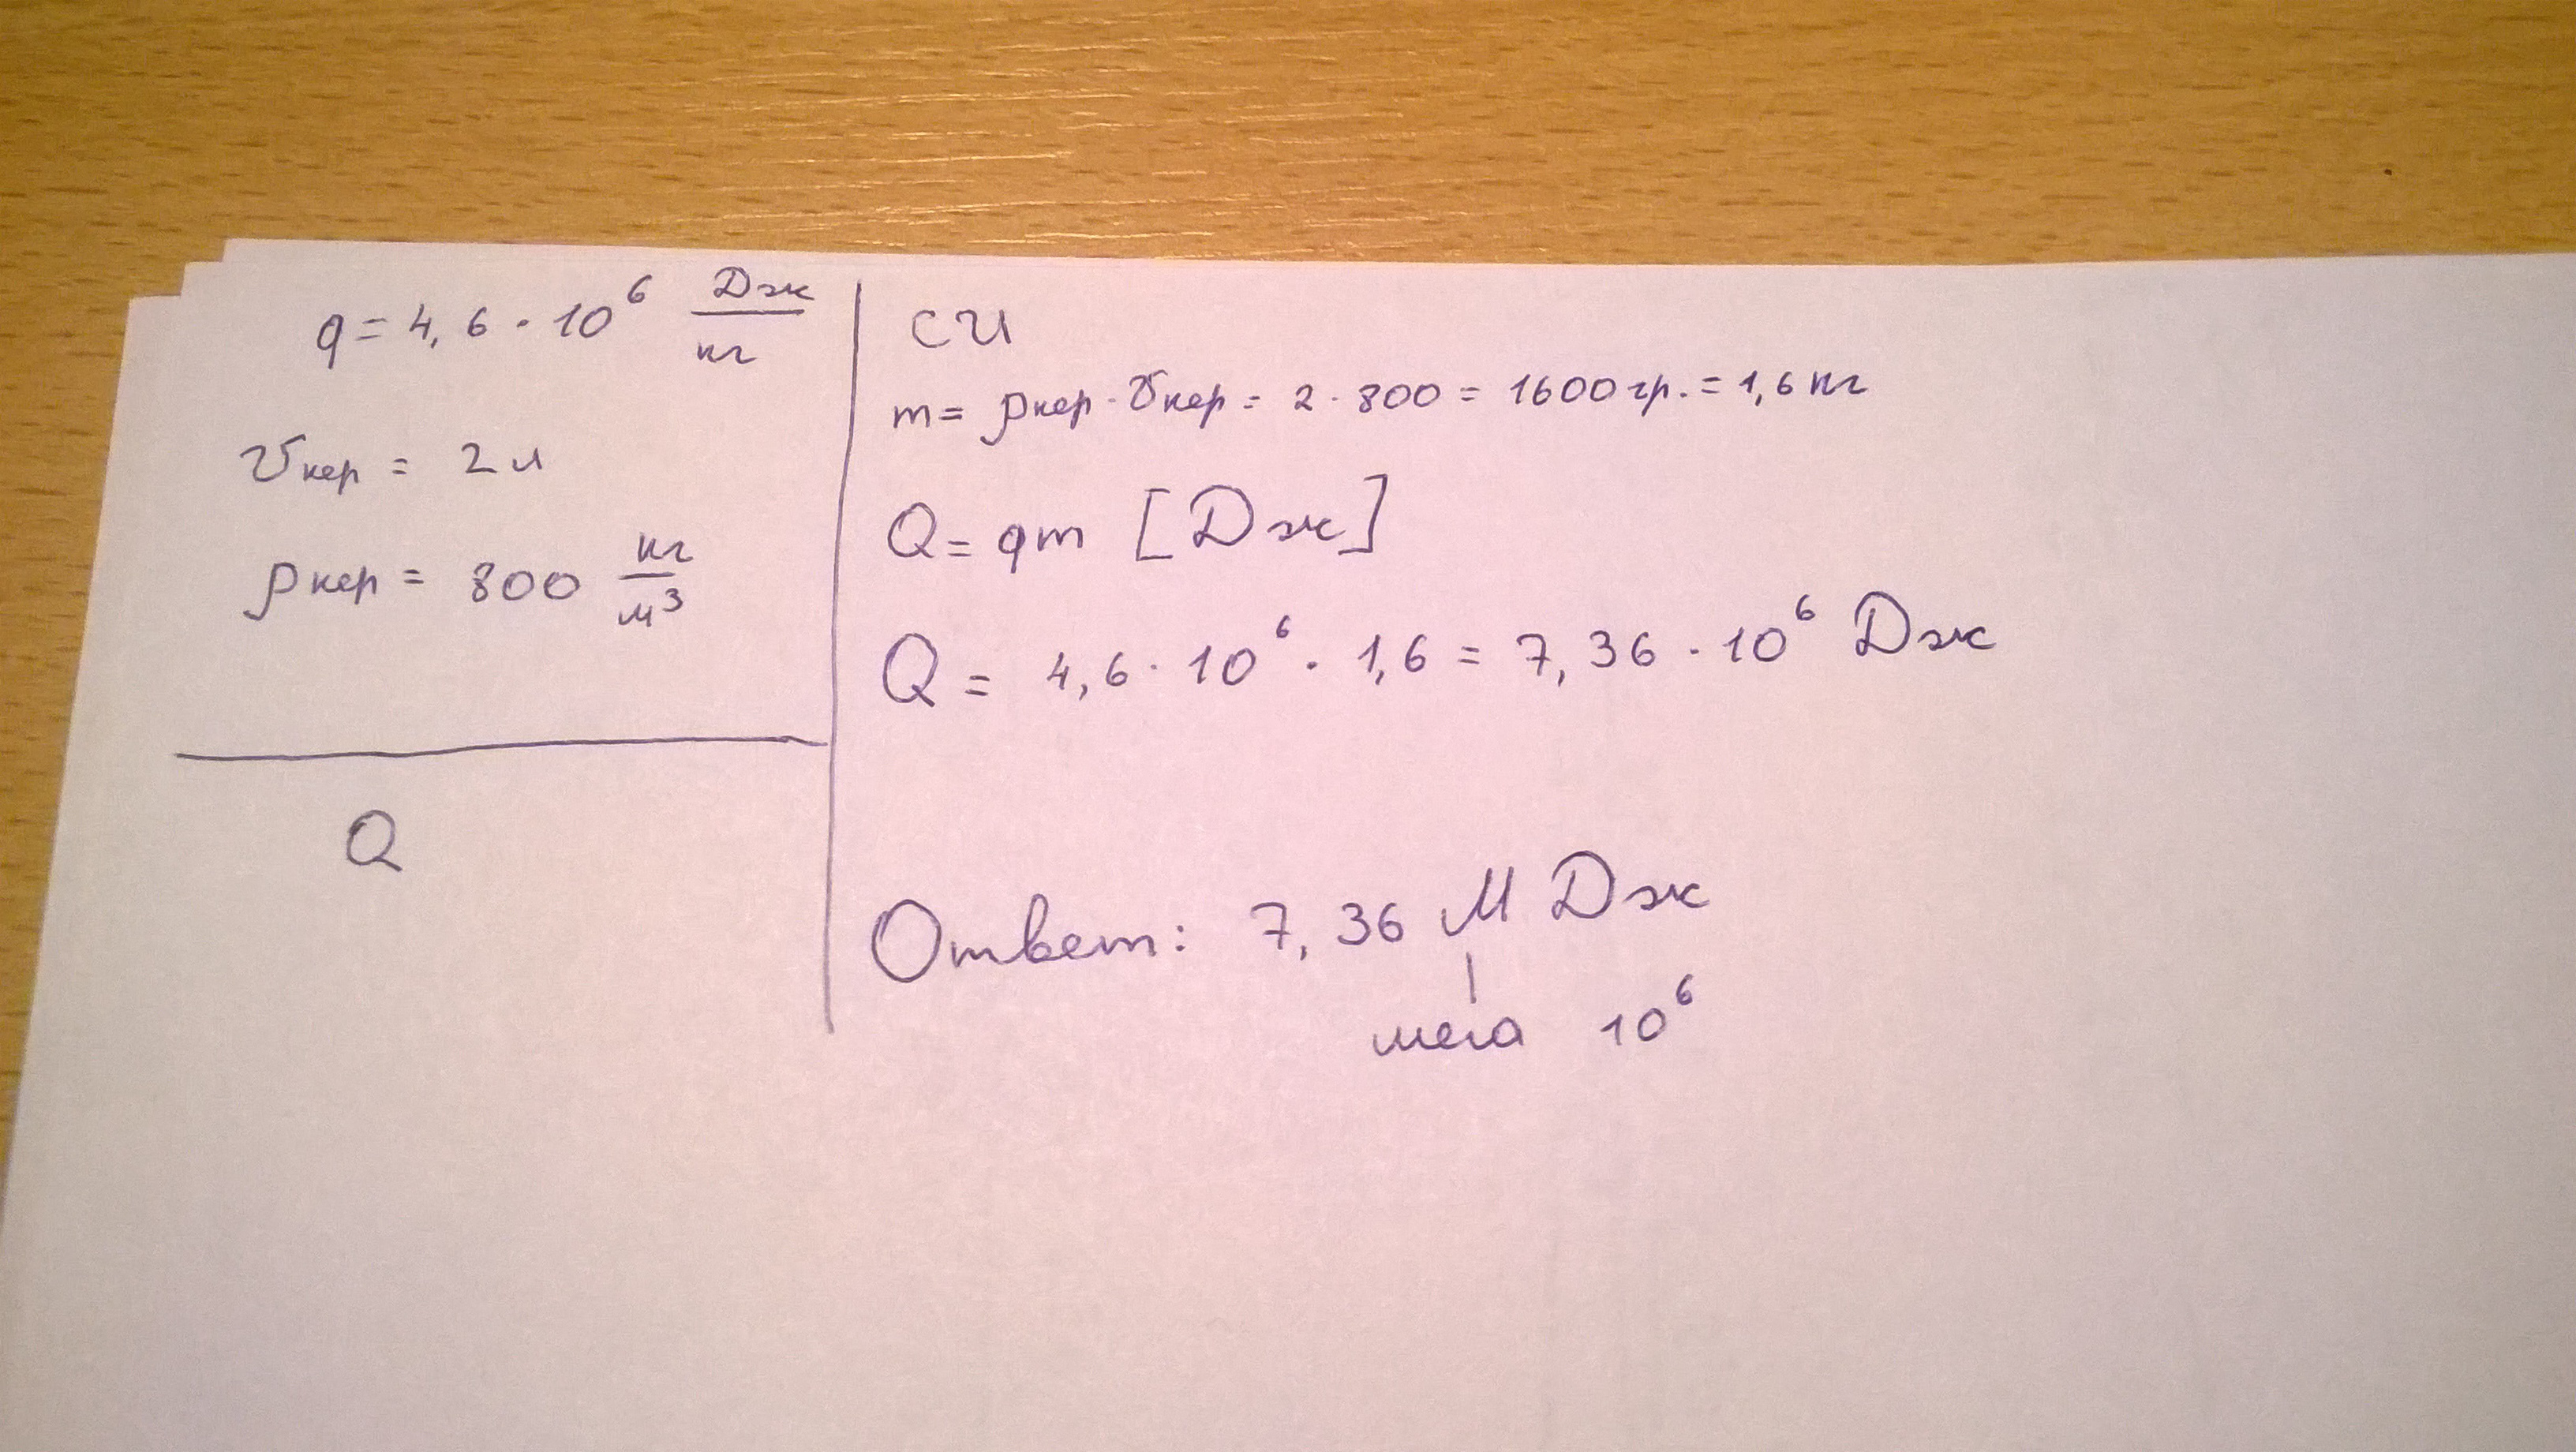 q = 4,6 · 10⁶ Дж/кг
Vкер = 2 л
ρкер = 800 кг/м³
Q
СИ
m = ρкер · Vкер = 2 · 800 = 1600 гр. = 1,6 кг
Q = qm [Дж]
Q = 4,6 · 10⁶ · 1,6 = 7,36 · 10⁶ Дж
Ответ: 7,36 М Дж
мега 10⁶